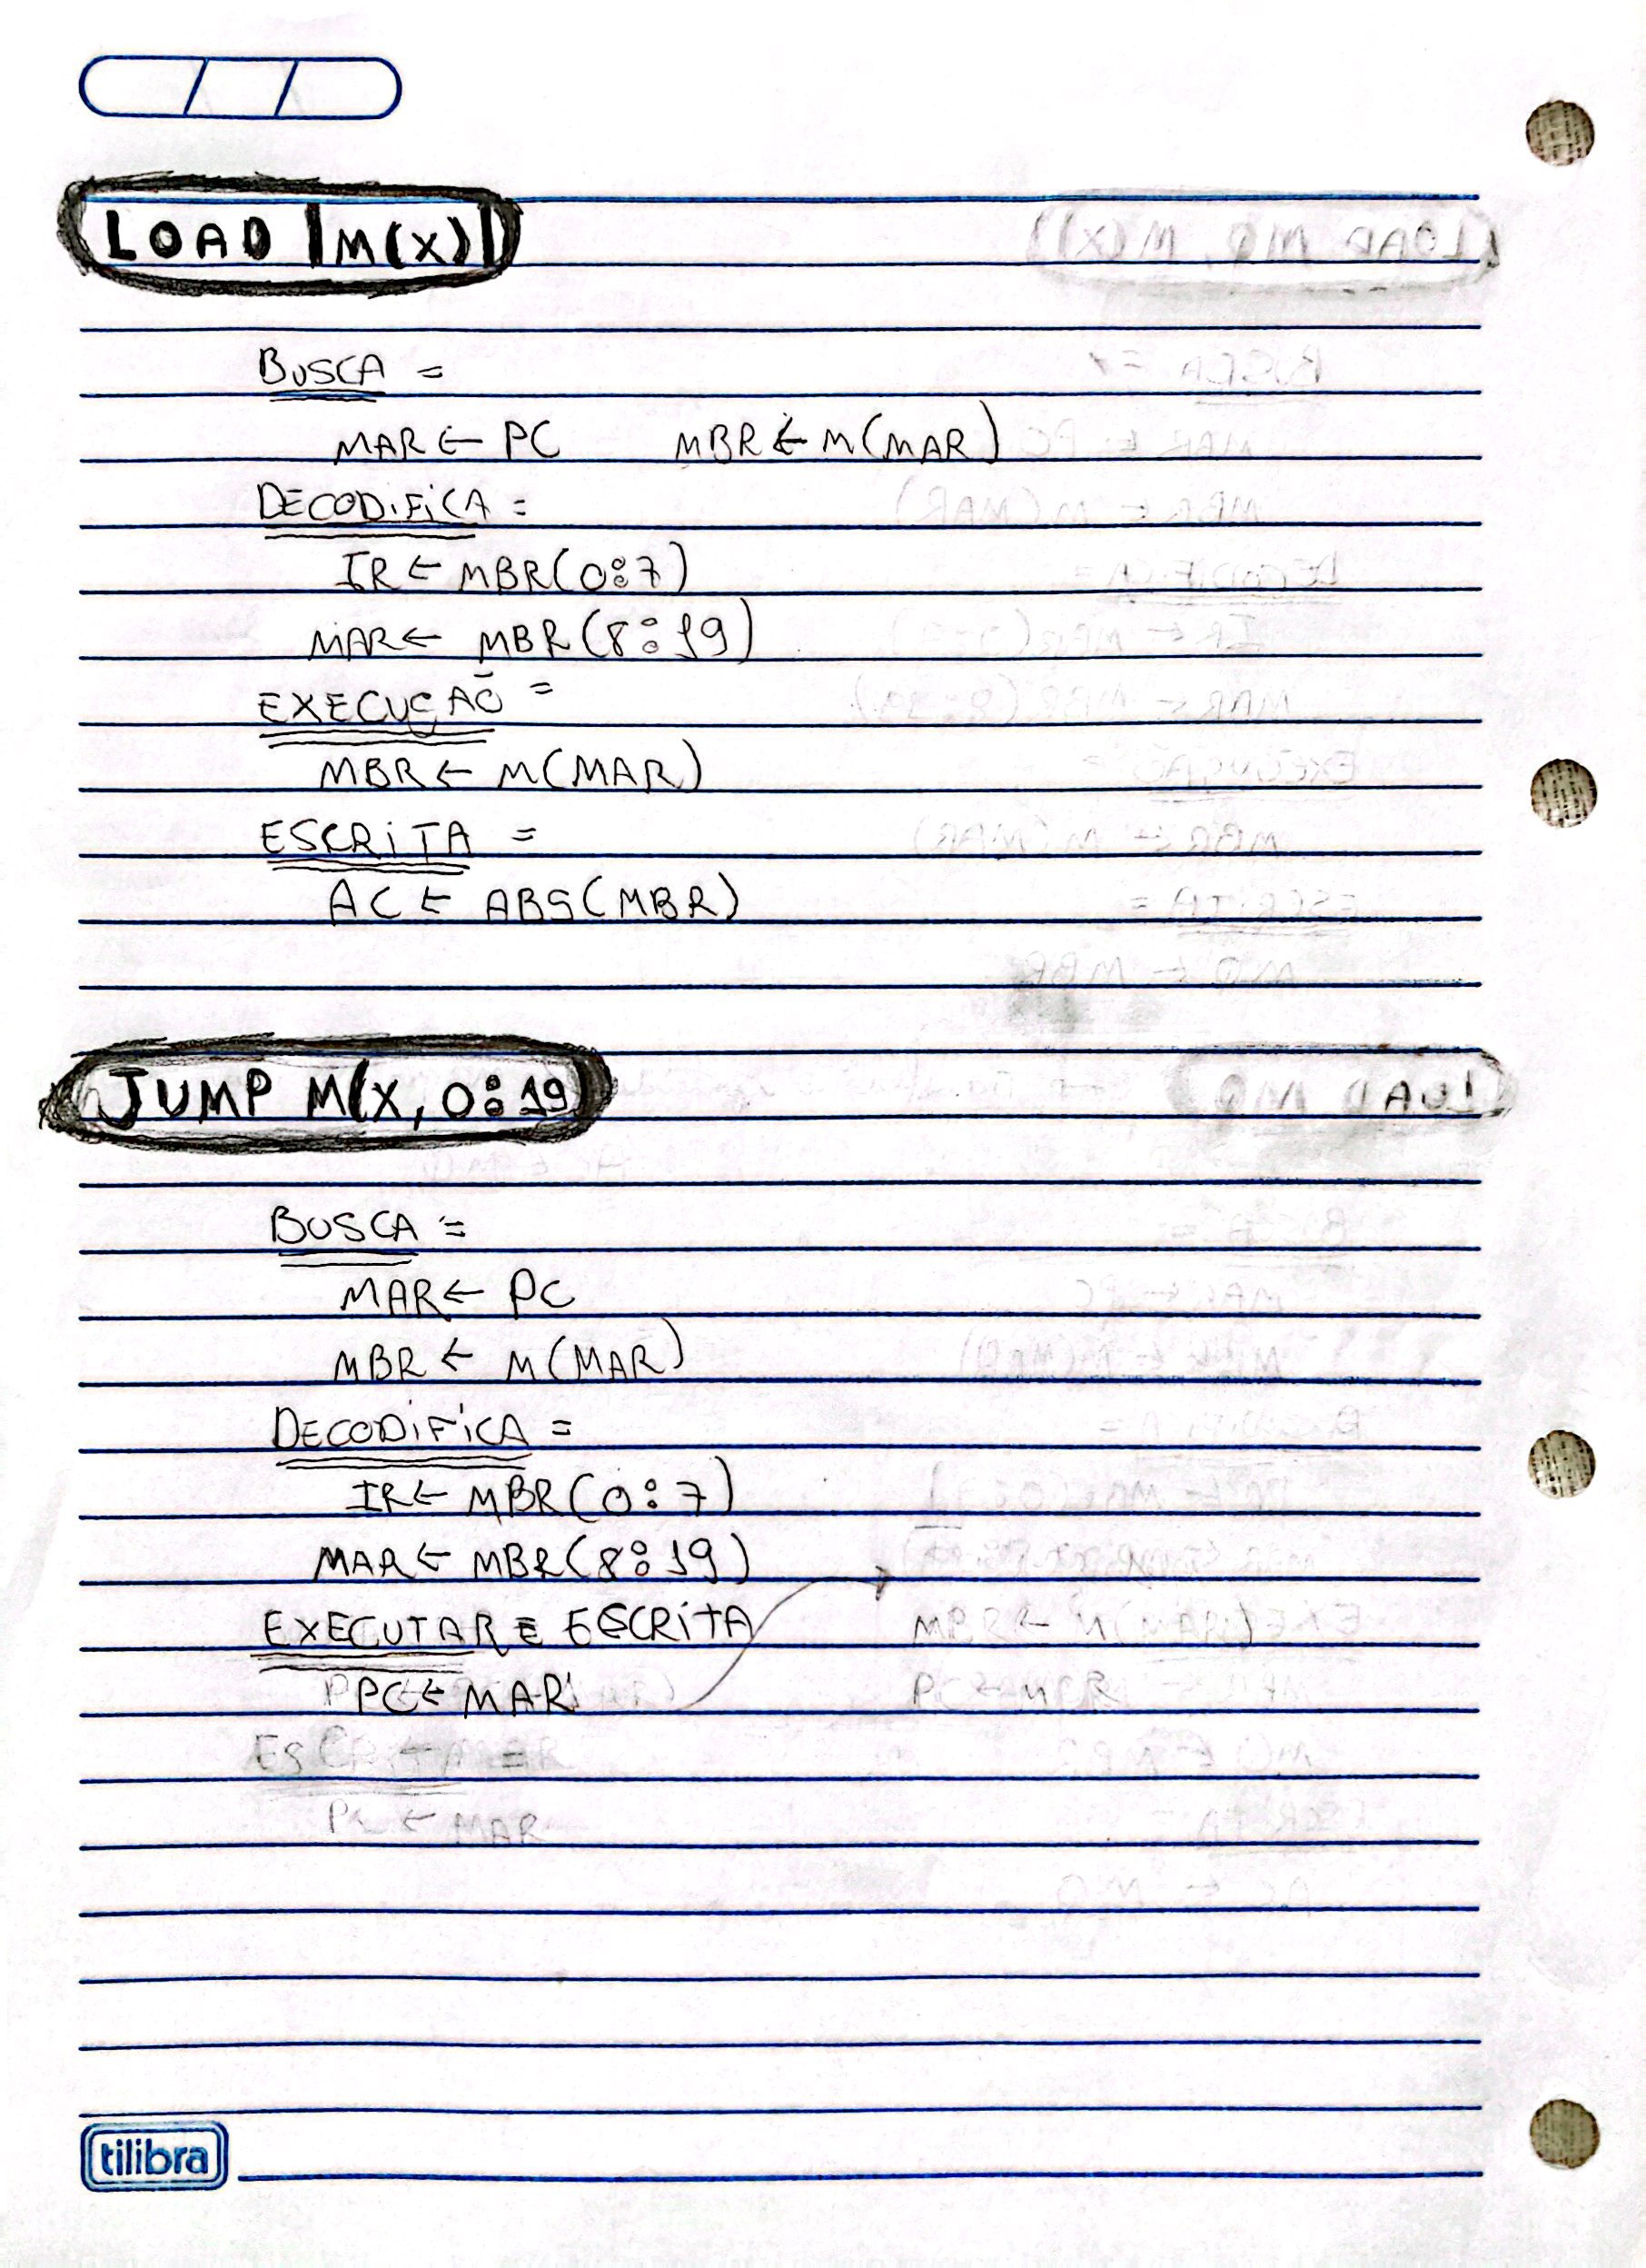 LOAD |M(X)|
BUSCA =
MAR ← PC MBR ← M(MAR)
DECODIFICA =
IR ← MBR(0:7)
MAR ← MBR(8:19)
EXECUÇÃO =
MBR ← M(MAR)
ESCRITA =
AC ← ABS(MBR)
JUMP M(X, 0:19)
BUSCA =
MAR ← PC
MBR ← M(MAR)
DECODIFICA =
IR ← MBR(0:7)
MAR ← MBR(8:19)
EXECUTAR E ESCRITA
PC ← MAR
ESCRITA =
PC ← MAR
tilibra